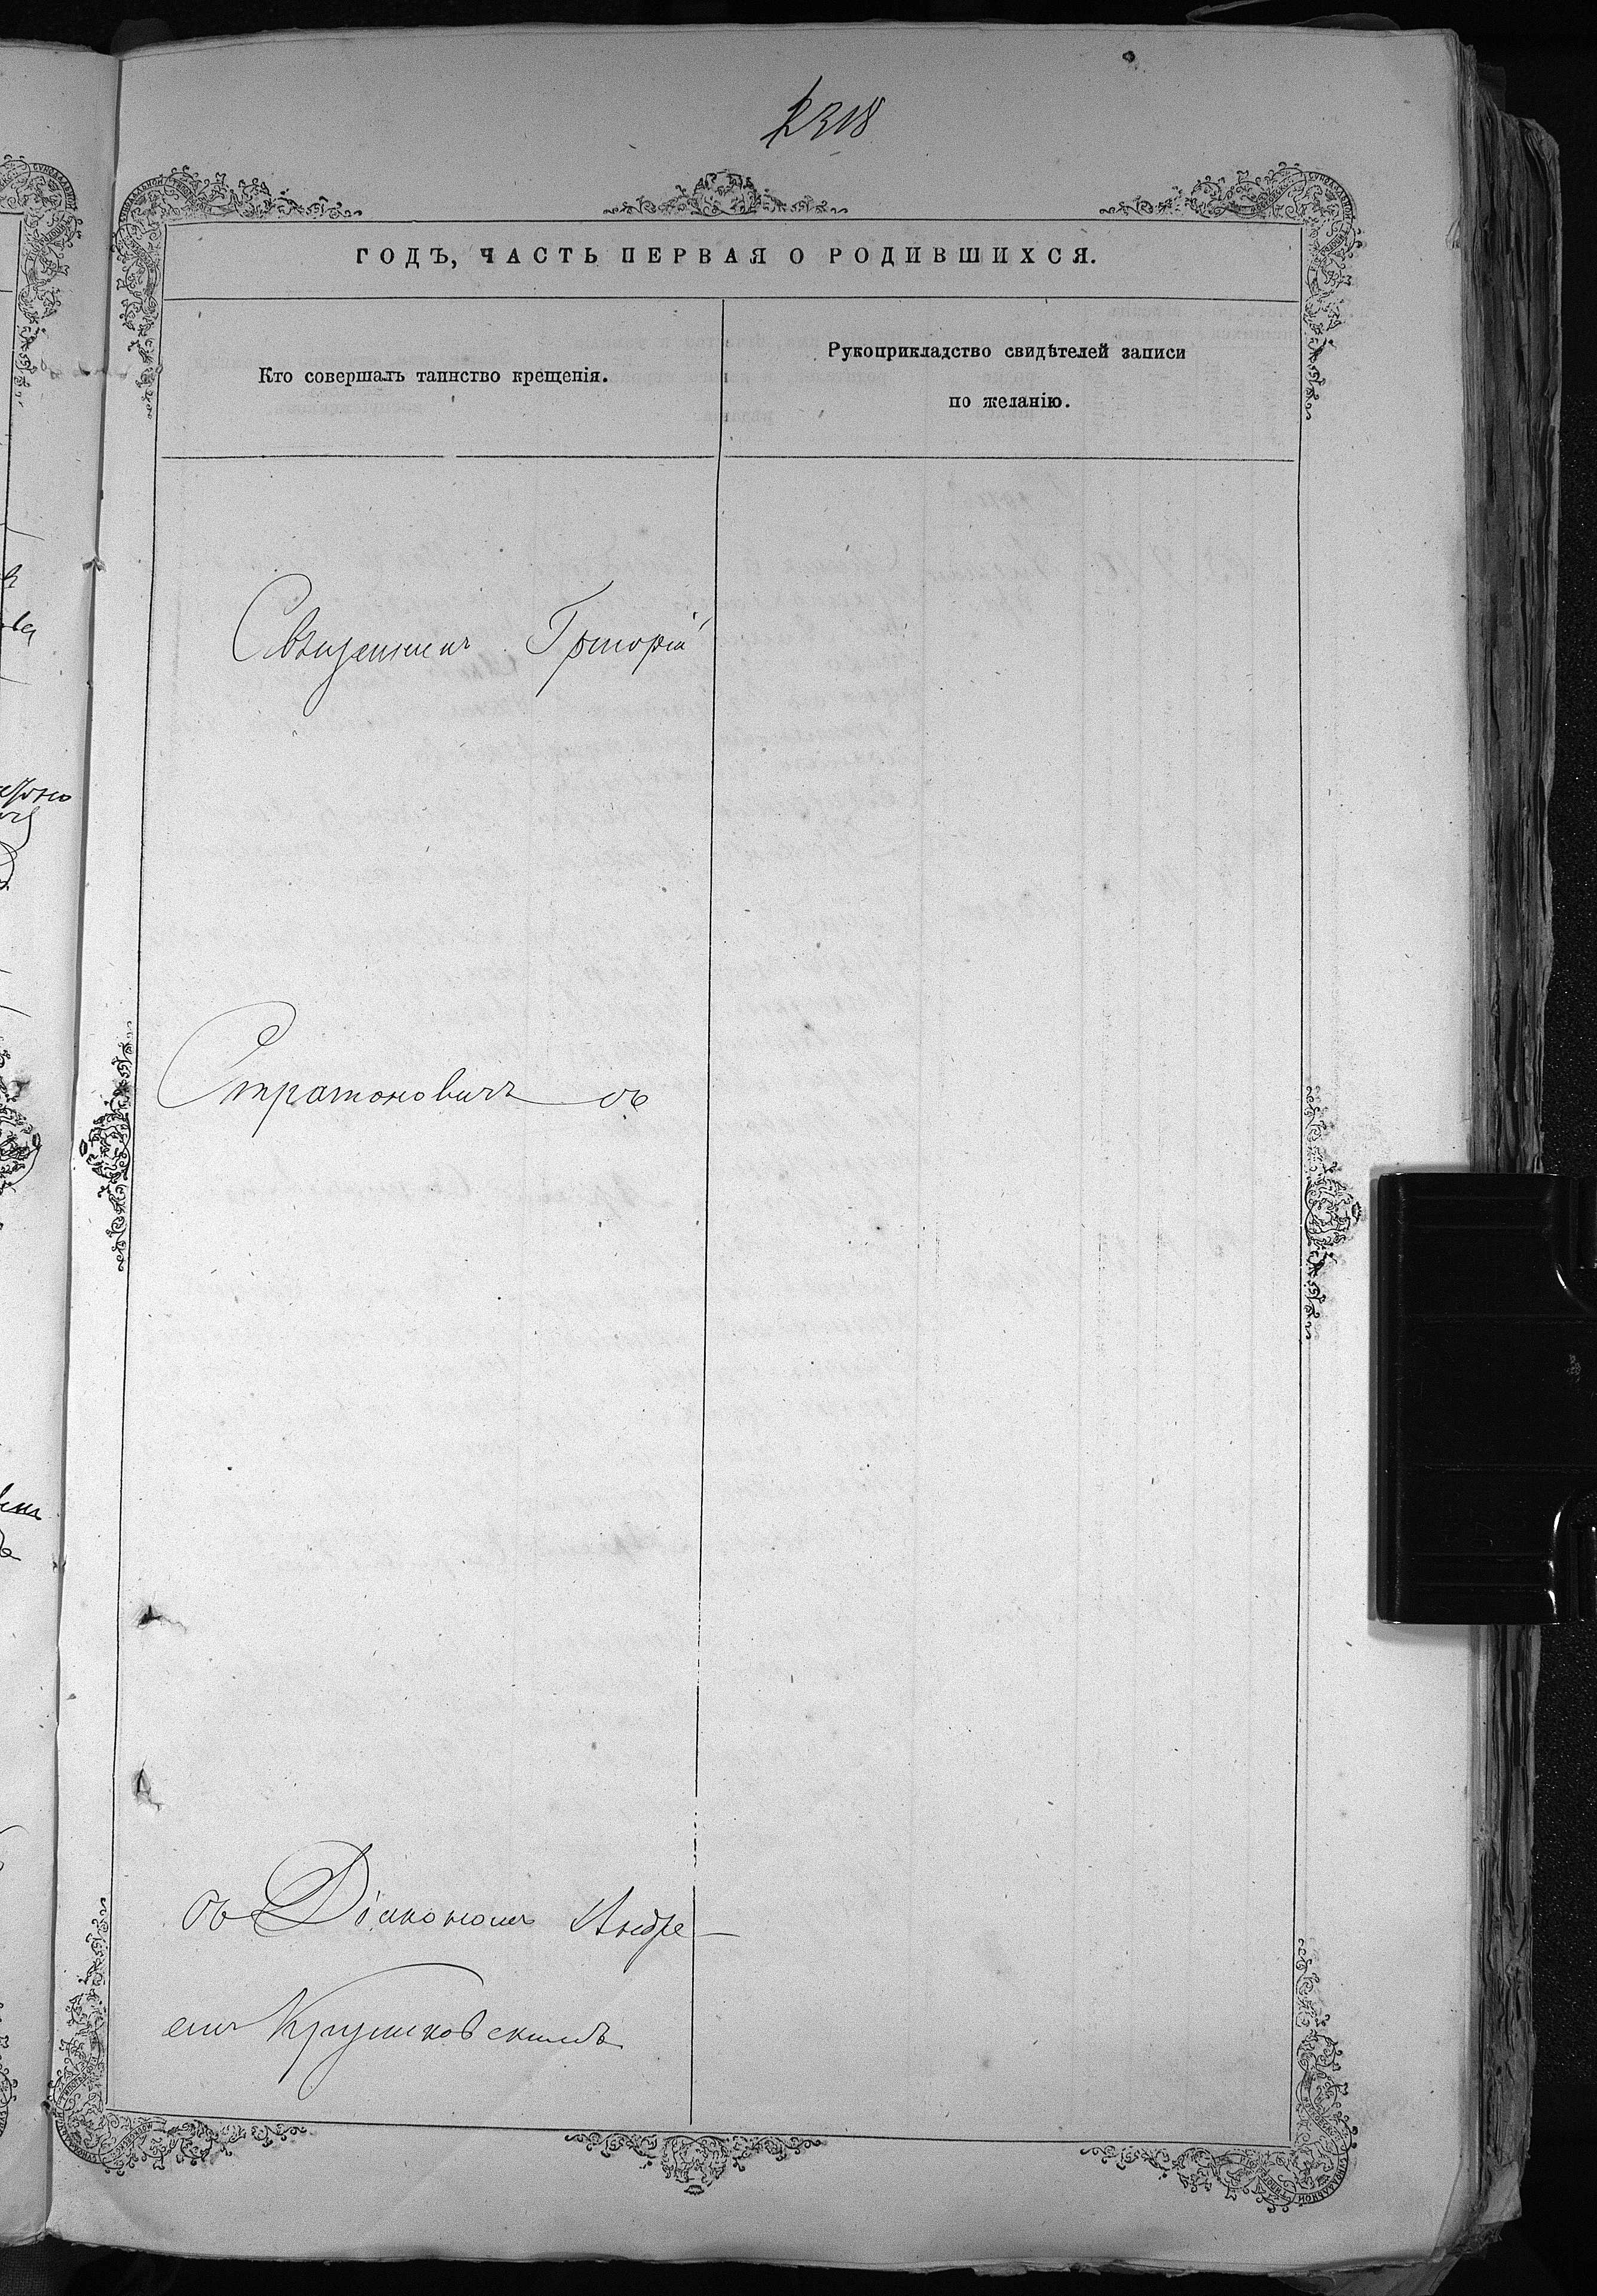 2318
ГОДЪ, ЧАСТЬ ПЕРВАЯ О РОДИВШИХСЯ.
Кто совершалъ таинство крещенія.
Рукоприкладство свидѣтелей записи
по желанію.
Священникъ Григорій
Стратоновичъ съ
съ Діакономъ Андре-
емъ Крушковскимъ